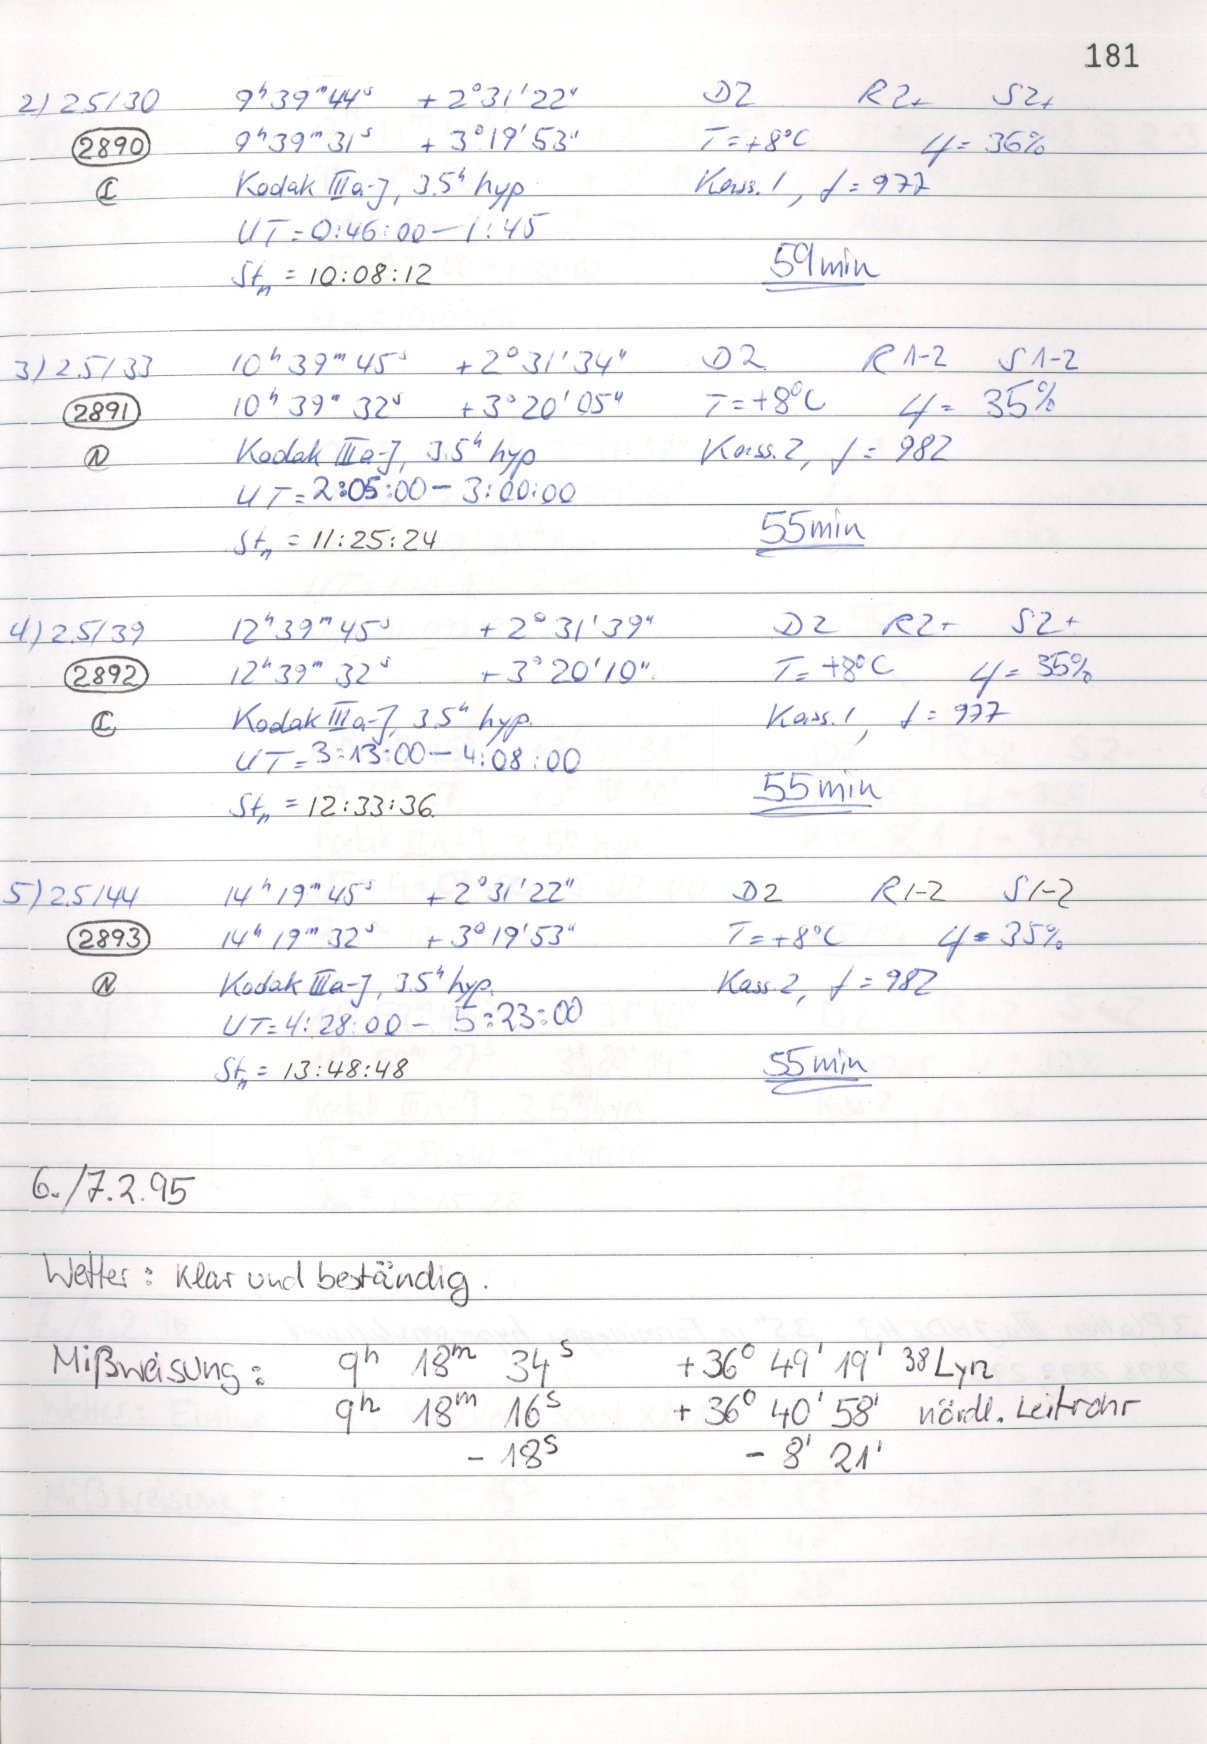 181
2) 2.5/30 9h 39m 44s + 2° 31' 22" D2 R2+ S2+
2890 9h 39m 31s + 3° 19' 53" T=+8°C φ= 36%
Kodak IIIa-J, 3.5h hyp Kass. 1, f = 977
UT = 0:46:00 – 1:45
Stn = 10:08:12 59min
3) 2.5/33 10h 39m 45s + 2° 31' 34" D2 R 1-2 S 1-2
2891 10h 39m 32s + 3° 20' 05" T=+8°C φ= 35%
N Kodak IIIa-J, 3.5h hyp Kass. 2, f = 982
UT = 2:05:00 – 3:00:00
Stn = 11:25:24 55min
4) 2.5/39 12h 39m 45s + 2° 31' 39" D2 R2+ S2+
2892 12h 39m 32s + 3° 20' 10" T= +8°C φ= 35%
Kodak IIIa-J, 3.5h hyp. Kass. 1, f = 977
UT = 3:13:00 – 4:08:00
Stn = 12:33:36 55min
5) 2.5/44 14h 19m 45s + 2° 31' 22" D2 R1-2 S1-2
2893 14h 19m 32s + 3° 19' 53" T=+8°C φ= 35%
N Kodak IIIa-J, 3.5h hyp. Kass. 2, f = 982
UT = 4:28:00 – 5:23:00
Stn = 13:48:48 55min
6./7.2.95
Wetter: Klar und beständig.
Mißweisung: 9h 18m 34s +36° 49' 19' 38 Lyn
9h 18m 16s + 36° 40' 58' nördl. Leitrohr
- 18s - 8' 21'